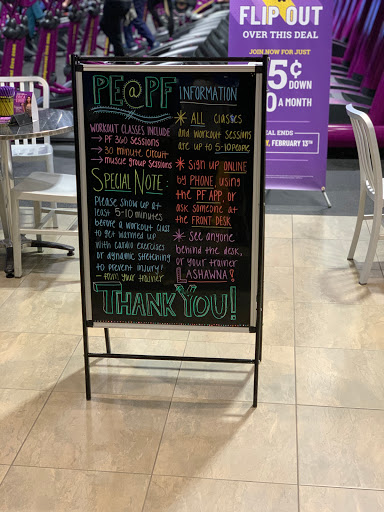 PE@PF INFORMATION
WORKOUT CLASSES INCLUDE
→ PF 360 SESSIONS
→ 30 minute circuit
→ muscle group sessions
SPECIAL NOTE:
Please show up at
least 5-10 minutes
before a workout class
to get warmed up
with cardio exercises
or dynamic stretching
to prevent injury!
- from your trainer
* ALL classes
and workout sessions
are up to 5-10 people
* Sign up ONLINE
by PHONE, using
the PF APP, or
ask someone at
the FRONT DESK
* See anyone
behind the desk,
or your trainer
LASHAWNA!
THANK YOU!
FLIP OUT
OVER THIS DEAL
JOIN NOW FOR JUST
5¢ DOWN
0 A MONTH
AL ENDS
, FEBRUARY 13TH